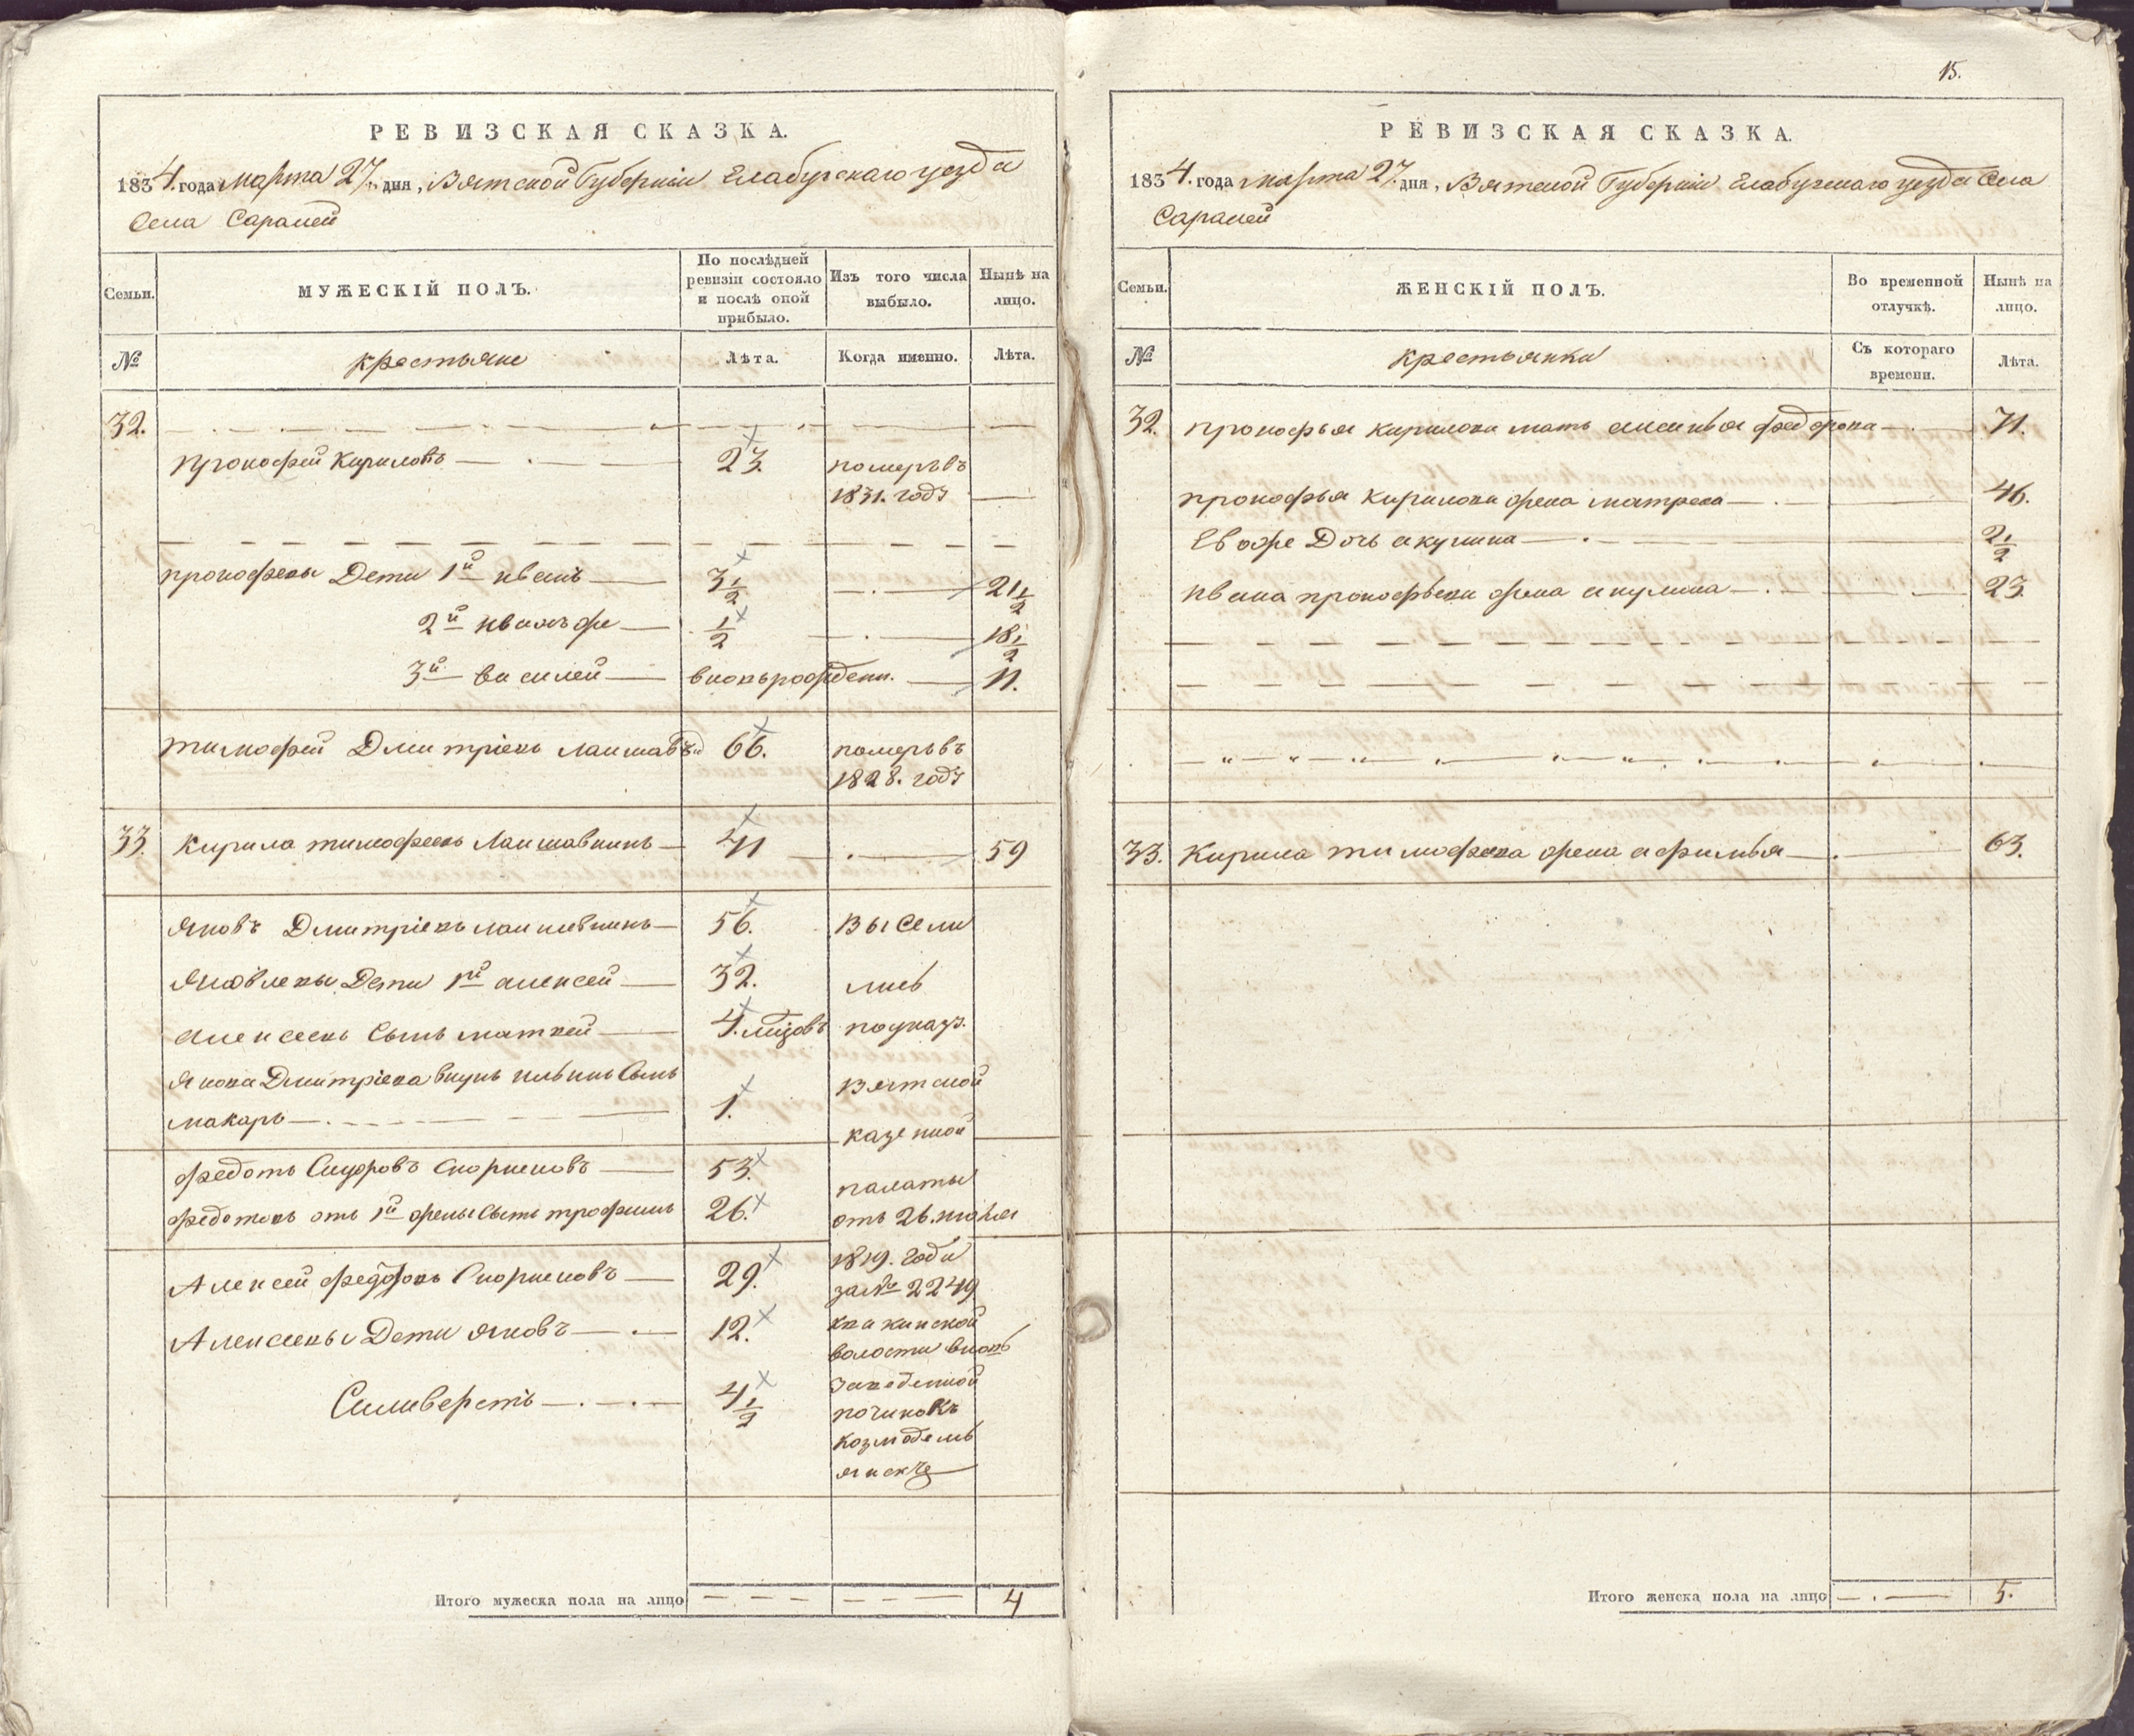 РЕВИЗСКАЯ СКАЗКА.
1834. года марта 27. дня, Вятской Губернiи Елабугскаго уезда
Села Саралей
Семьи.
МУЖЕСКIЙ ПОЛЪ.
По послѣдней ревизiи состояло и послѣ оной прибыло.
Изъ того числа выбыло.
Нынѣ на лицо.
№
крестьяне
Лѣта.
Когда именно.
Лѣта.
32.
прокофей Кириловъ 23. померъ въ
1831. году
прокофевы Дети 1й иванъ 3 1/2 21 1/2
2й иванъ же 1/2 18 1/2
3й василей вновьрожденн. 11.
тимофей Дмитрiевъ 66. померъ въ
1828. году
33. Кирила тимофеевъ Лаишавнинъ 41 59
яковъ Дмитрiевъ 56. Высели
яковлевы Дети 1й алексей 32. лись
алексеевъ Сынъ матвей 4. поуказу.
якова Дмитрiева внукъ Сынъ
макаръ 1. Вятской
казенной
федотъ Сидоровъ 53. палаты
федотовъ отъ 1й жены Сынъ трофимъ 26. отъ 26. июля
1819. года
Алексей федоровъ 29. за № 2249
Алексеевы Дети яковъ 12.
волости вновь
Силиверстъ 4 1/2 Заведенной
починокъ
козмодемь
янскъ
Итого мужеска пола на лицо 4
15.
РЕВИЗСКАЯ СКАЗКА.
1834. года марта 27. дня, Вятской Губернiи Елабугскаго уезда Села
Саралей
Семьи.
ЖЕНСКIЙ ПОЛЪ.
Во временной отлучкѣ.
Нынѣ на лицо.
№
Крестьянки
Съ котораго времени.
Лѣта.
32. прокофья кирилова мать федорова 71.
прокофья кирилова жена матрена 46.
Ево же Дочь акулина 2 1/2
ивана прокофьева жена акулина 23.
33. Кирила тимофеева жена афимья 63.
Итого женска пола на лицо 5.